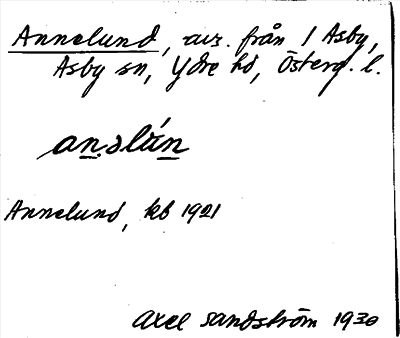 Annelund, avs. från 1 Asby,
Asby sn, Ydre hd, Österg. l.
an̲əlún̲
Annelund, kb 1921
Axel Sandström 1930